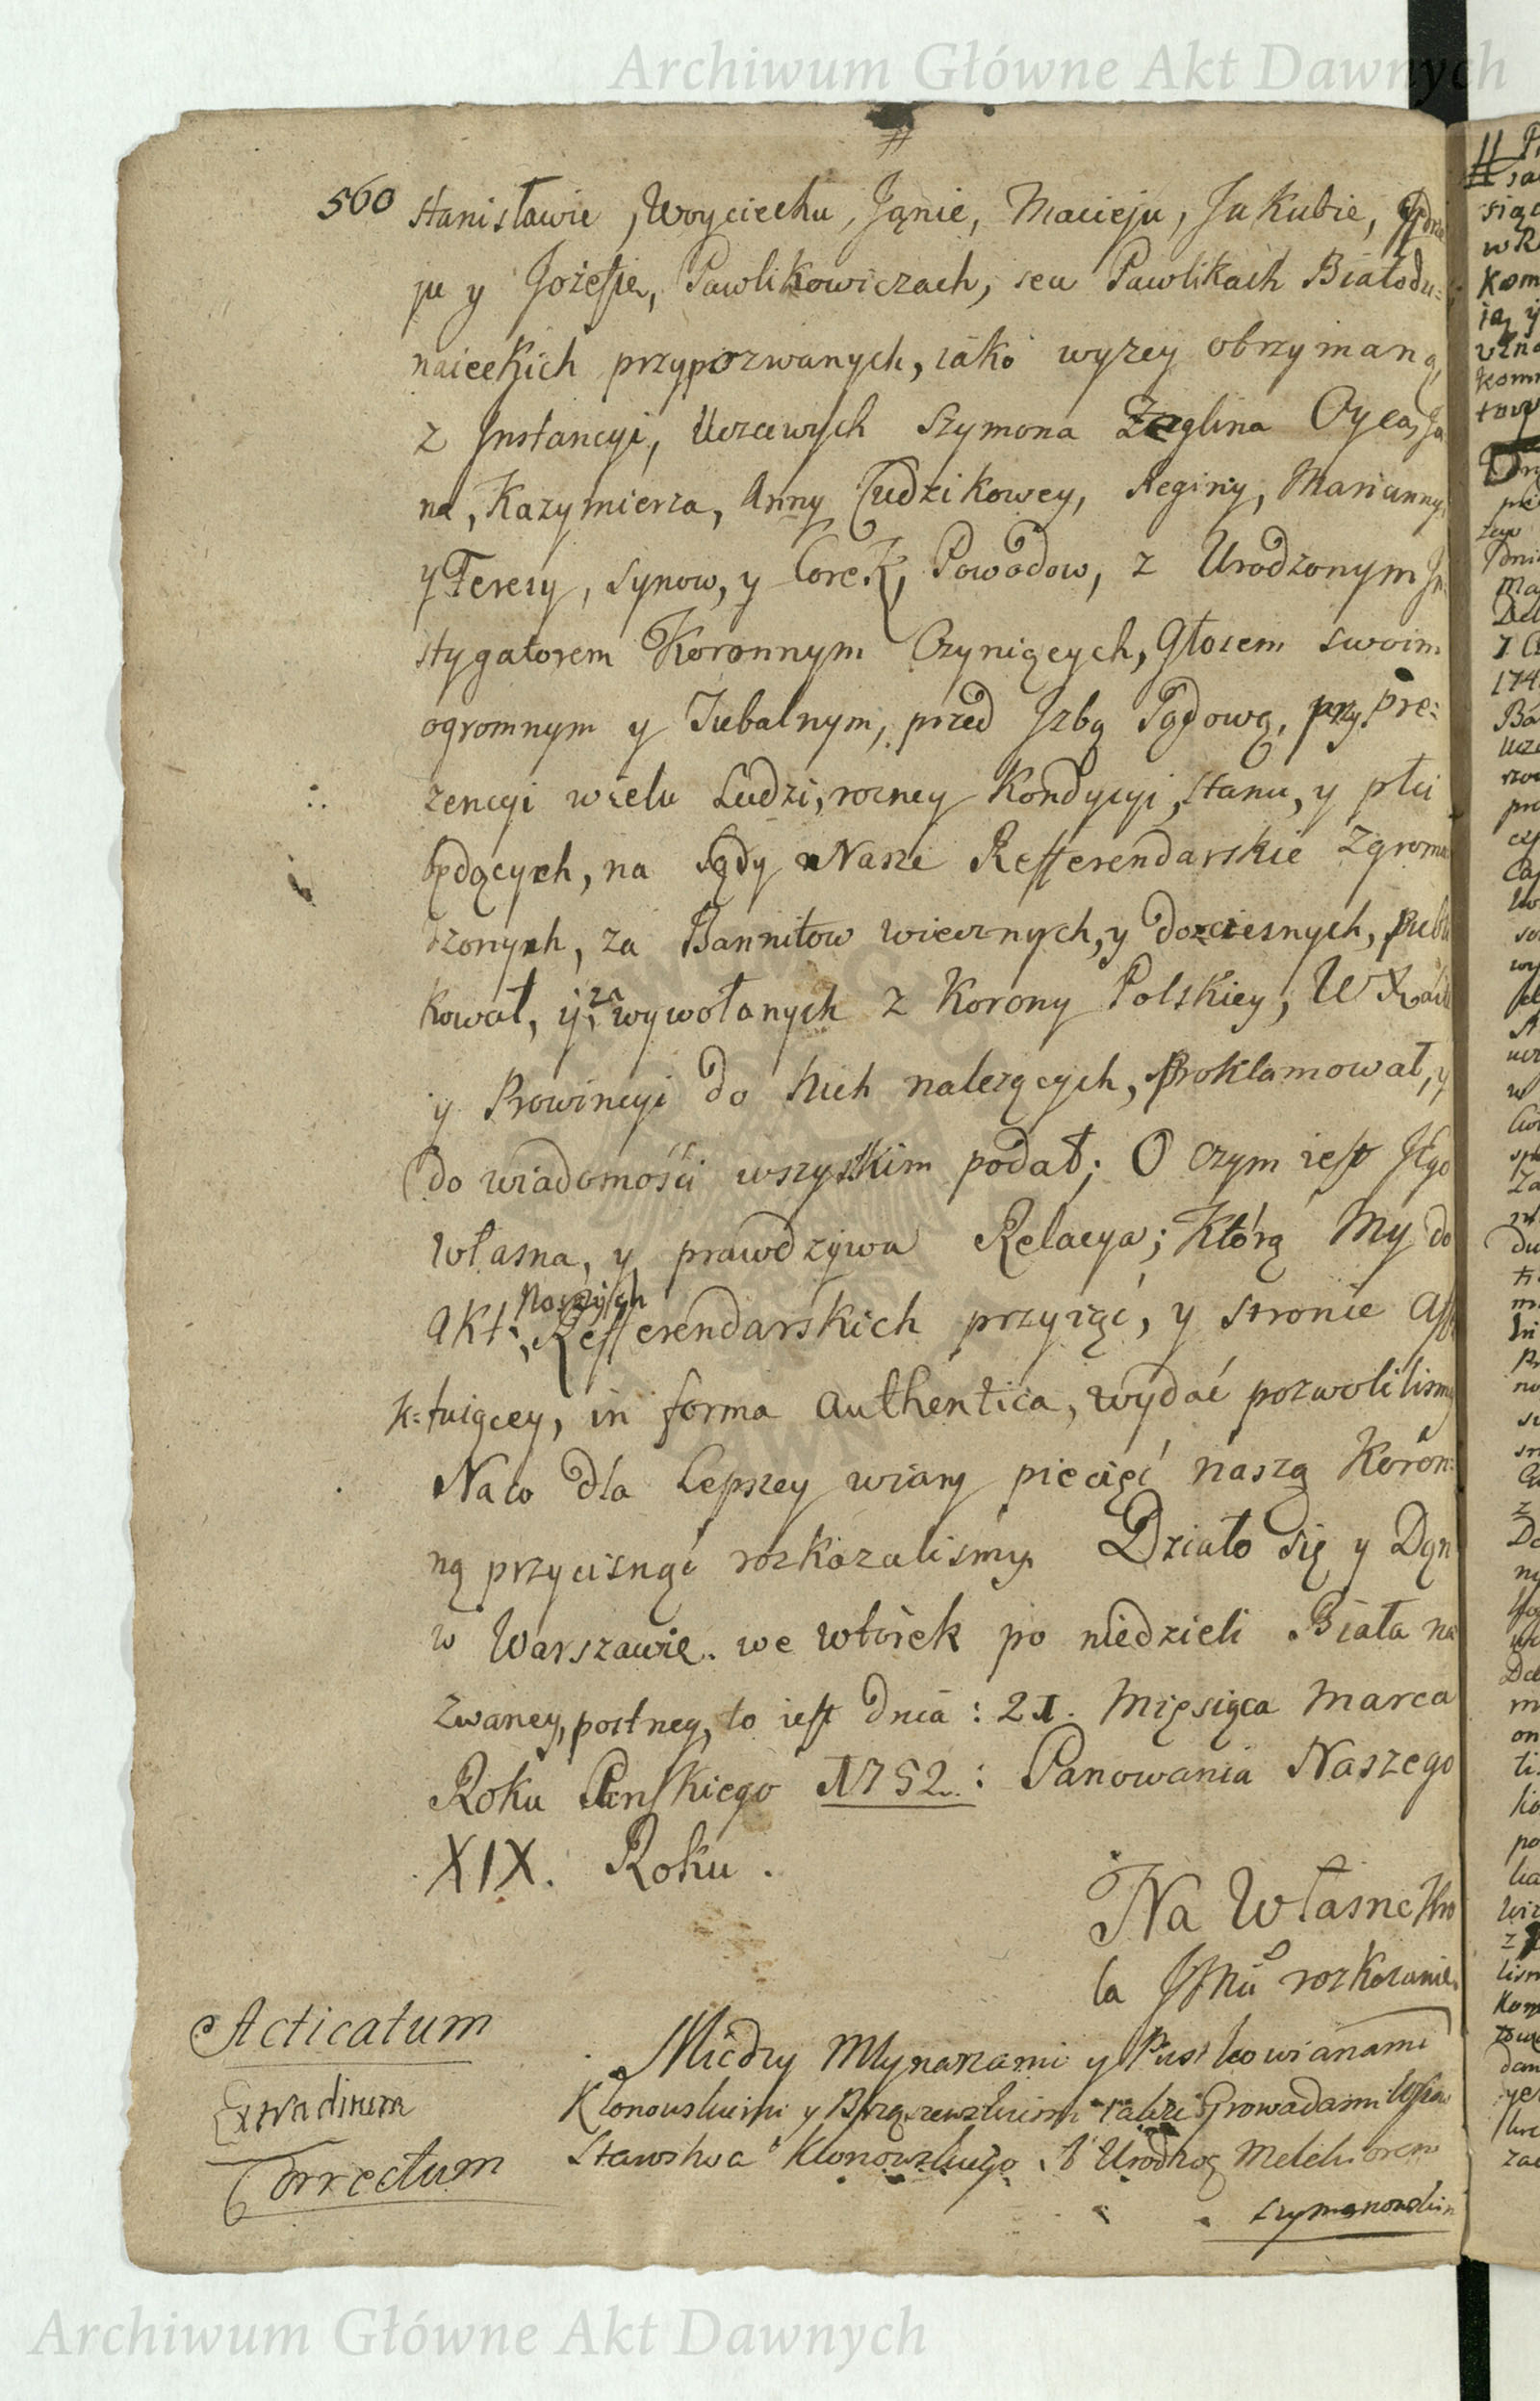 Archiwum Główne Akt Dawnych
#
560 Stanisławie, Woyciechu, Janie, Macieju, Jakubie, Jędrze
ju y Jozefie, Pawlikowiczach, seu Pawlikach Białodu=
naieckich przypozwanych, iako wyzey obrzymaną,
z Instancyi, Uczciwych Szymona Zeglina Oyca, Ja
na, Kazymierza, Anny Cudzikowey, Reginy, Marianny,
y Teresy, synow, y Corek, Powodow, z Urodzonym In
stygatorem Koronnym Czyniących, Głosem swoim
ogromnym y Tubalnym, przed Izbą Sądową, przy Pre=
zencyi wielu Ludzi, rozney Kondycyi, stanu, y płci
będących, na sądy Nasze Refferendarskie zgroma
dzonych, za Bannitow wiecznych, y doczesnych, publi
kował, y za wywołanych z Korony Polskiey, W X Lit
y Prowincyi do Nich nalezących, Proklamował, y
do wiadomości wszystkim podał; O czym iest Jego
własna, y prawdziwa Relacya; Którą My do
Akt Naszych Refferendarskich przyiąć, y stronie Aff
k=tuiącey, in forma Authentica, wydać pozwolilismy
Na co dla Lepszey wiary pieczęć naszą Koron=
ną przycisnąć rozkazalismy. Działo się y Dan
w Warszawie. we wtorek po niedzieli Biała na
zwaney, postney, to iest dnia : 21. Miesiąca Marca
Roku Pańskiego 1752. : Panowania Naszego
XIX. Roku.
Na Własne Kro
la JMci rozkazanie.
Acticatum
Extraditum
Correctum
Miedzy Młynarzami y Pustkowianami
Klonowskiemi y tudzi Gromadami Wsiow
Starostwa Klonowskiego A Urodzog Melchiorem
Szymanowskim
Archiwum Główne Akt Dawnych